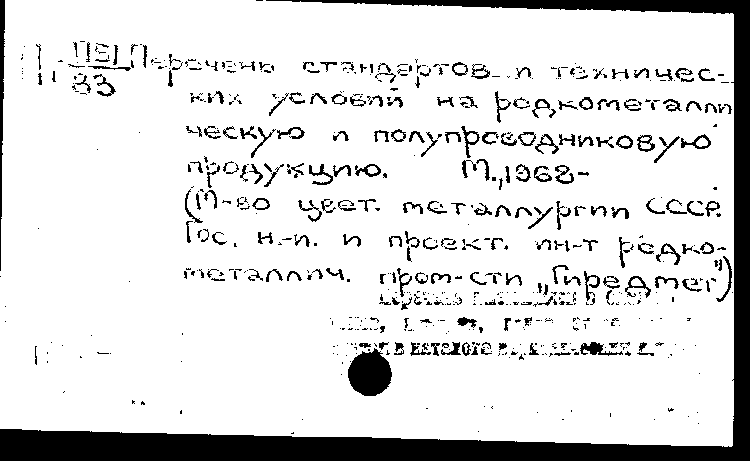 П151 Перечень стандартов и техничес-
83
ких условий на редкометалли
ческую и полупроводниковую
продукцию. М., 1968-
(М-во цвет. металлургии СССР.
Гос. н.-и. и проект. ин-т редко-
металлич. пром-сти „Гиредмет")